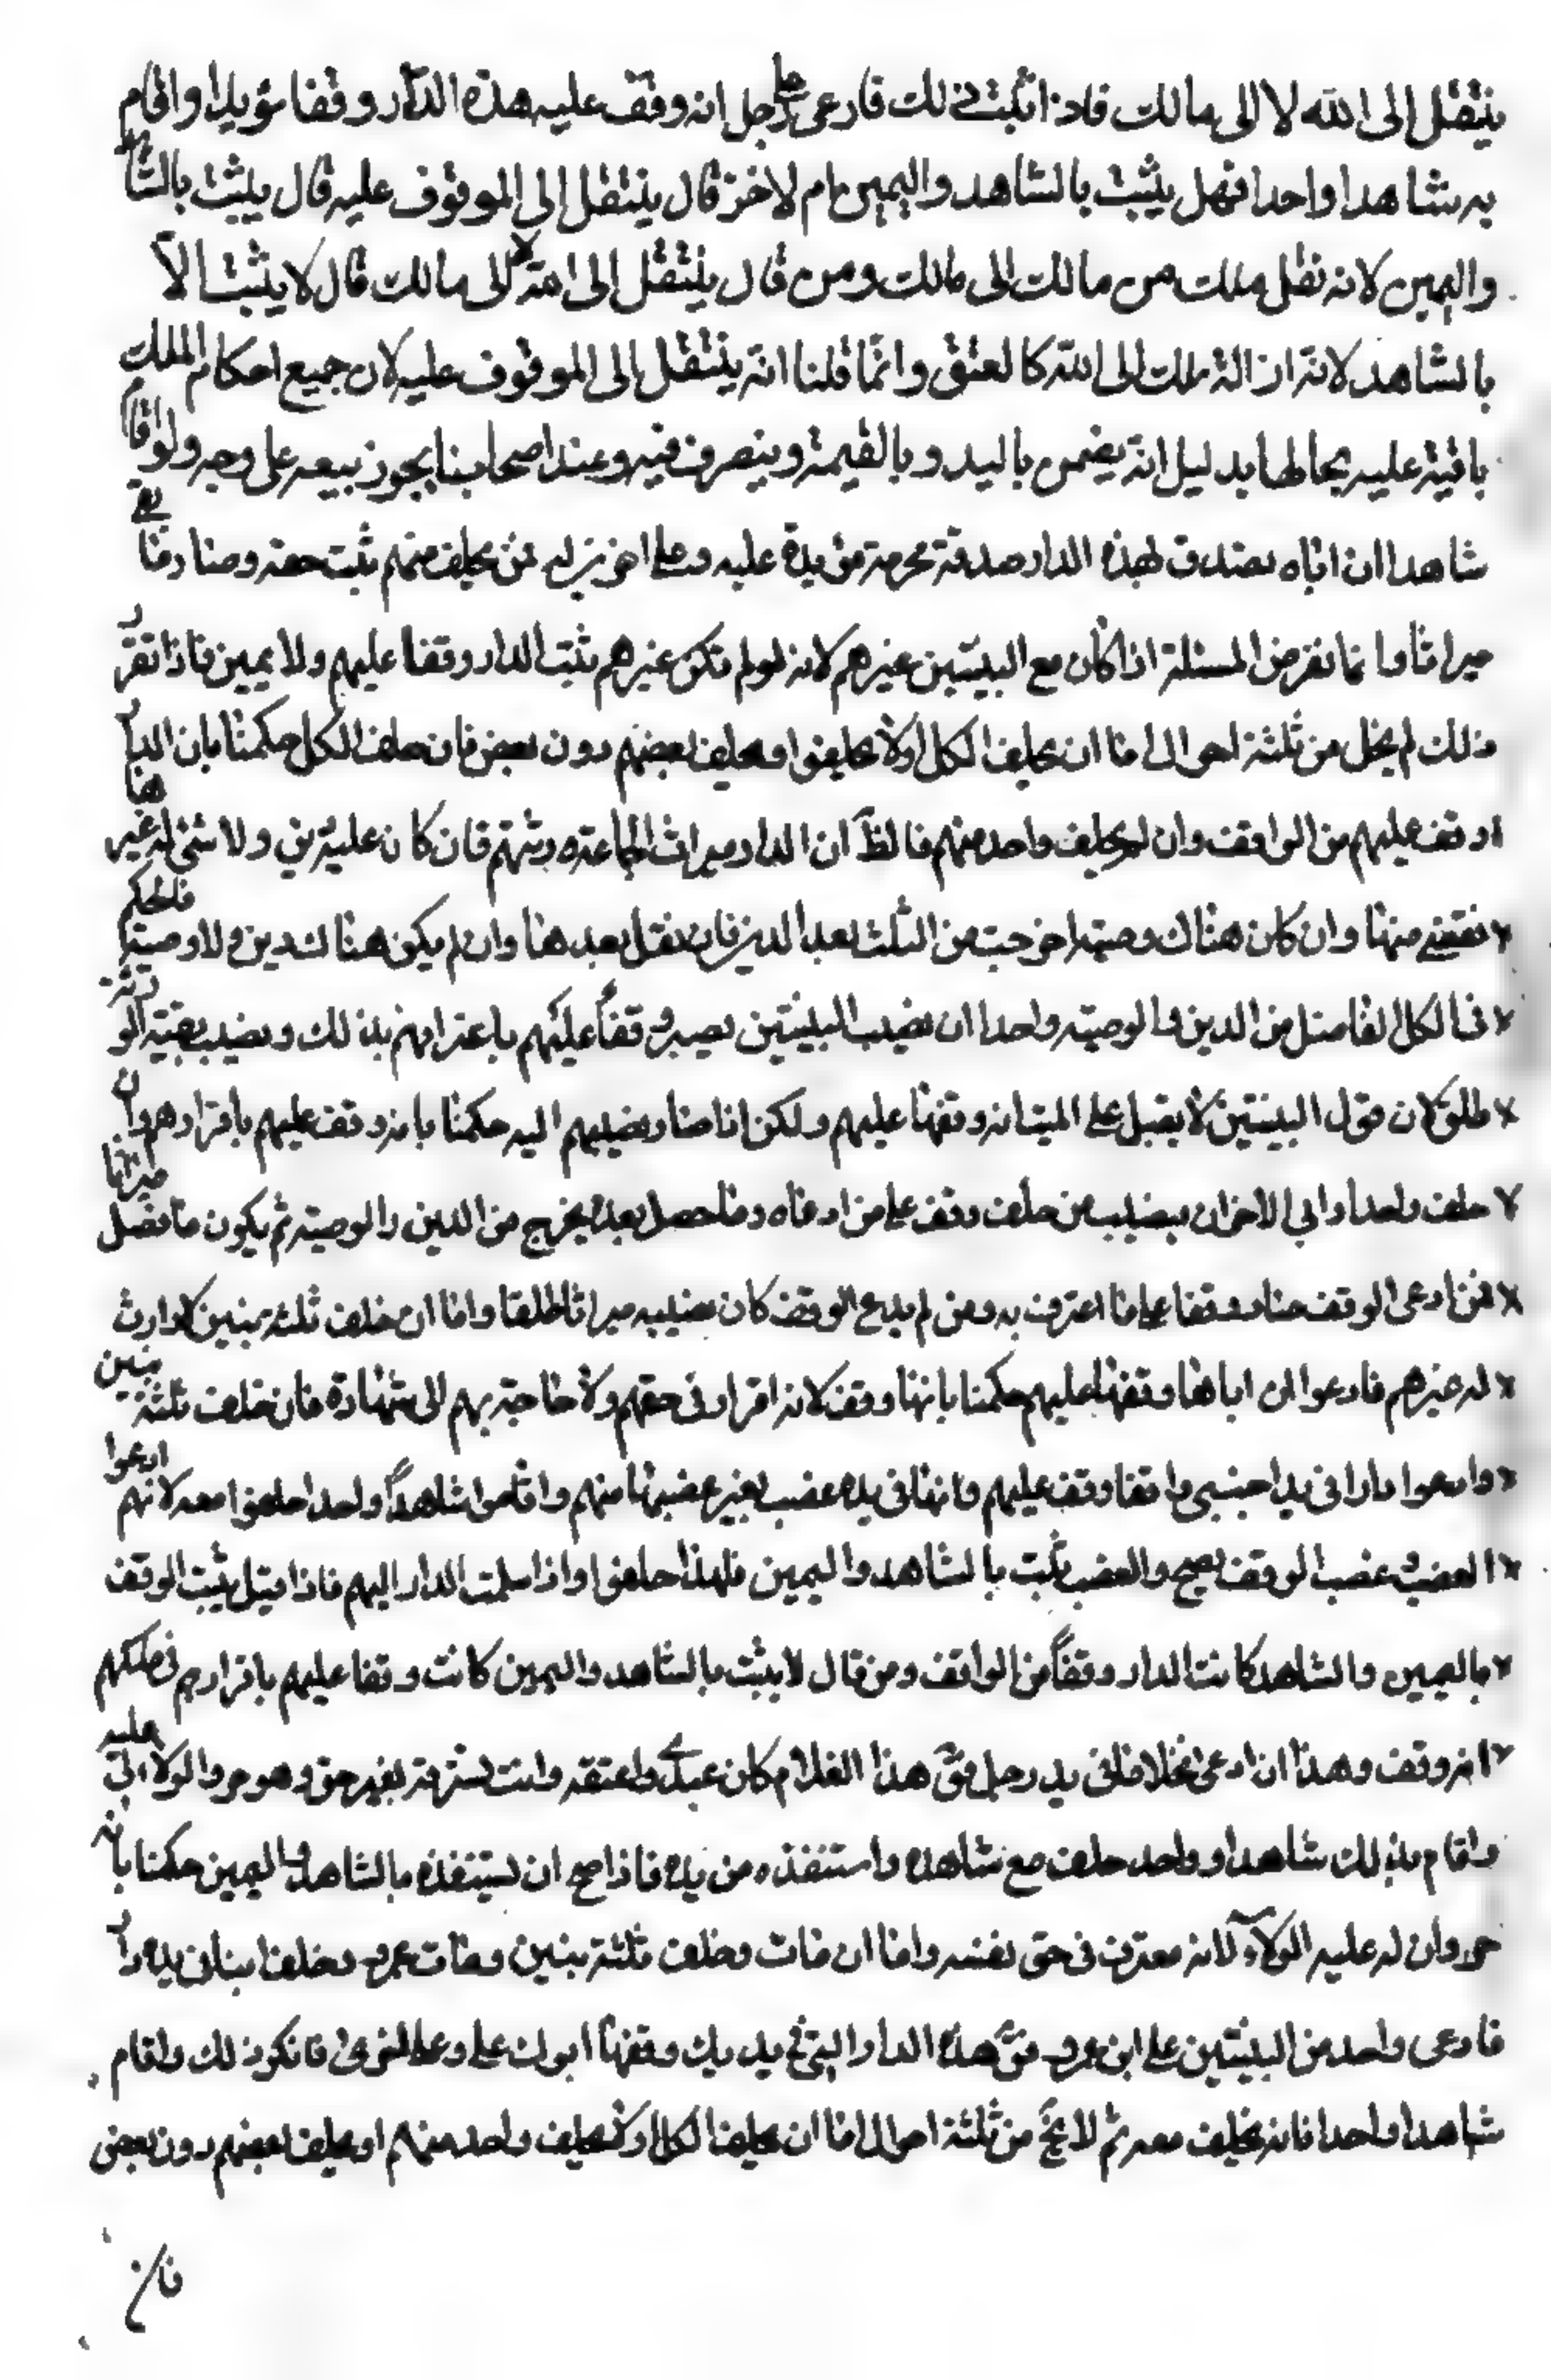 ينتقل إلى الله لا إلى مالك فاذا اثبت ذلك فادعى على رجل انه وقف عليه هذه الدار وقفا مؤبدا واقام
به شاهدا واحدا فهل يثبت بالشاهد واليمين ام لا فمن قال ينتقل إلى الموقوف عليه قال يثبت بالشاهد
واليمين لانه نقل ملك من مالك الى مالك ومن قال ينتقل إلى الله لا الى مالك قال لا يثبت الا
بالشاهد لانه ازالة ملك الى الله كالعتق وانما قلنا انه ينتقل إلى الموقوف عليه لان جميع احكام الملك
باقية عليه بحالها بدليل انه يضمن باليد و بالقيمة و يتصرف فيه وعند اصحابنا يجوز بيعه على وجه ولو اقام
شاهدا ان اباه تصدق بهذه الدار صدقة محرمة مؤبدة عليه وعلى اخوين له فمن يحلف منهم ثبت حقه وصار ما بقي
ميراثا وانما نفرض المسئلة اذا كان مع البنين غيرهم لانه لو لم تكن غيرهم ثبت الدار وقفا عليهم ولا يمين فاذا تقرر
ذلك لم يخل من ثلثة احوال اما ان يحلف الكل اولا يحلفوا او يحلف بعضهم دون بعض فان حلف الكل حكمنا بان الدار
وقف عليهم من الواقف وان لم يحلف واحد منهم فالظ ان الدار ميراث لجماعة ورثتهم فان كان عليه دين ولا شئ له غيرها
نقضي منها وان كان هناك وصية اخرجت من الثلث بعد الدين فان نقل بعد هنا وان لم يكون هناك دين ولا وصية فالحكم
في الكل الفاضل من الدين والوصية واحدا ان نصيب البنين يصير وقفا عليهم باعترافهم بذلك ونصيب بقية الورثة
طلق لان قول البنين لا يقبل على الميت انه وقفها عليهم ولكن اذا صار نصيبهم اليه حكمنا بانه وقف عليهم باقرارهم وان
حلف واحد وابى الاخران فنصيب من حلف وقف على من ادعاه وما حصل بعده يخرج من الدين والوصية ثم يكون ما فضل ميراثا
فمن ادعى الوقف صار وقفا على ما اعترف به ومن لم يدع الوقف كان نصيبه ميراثا طلقا واما ان خلف ثلثة بنين لا وارث
له غيرهم فادعوا ان اباهم وقفها عليهم حكمنا بانها وقف لانه اقرار في حقهم ولا حاجة بهم الى شهادة فان خلف ثلثة بنين
وادعوا دارا في يد اجنبي وانها وقف عليهم وانها في يده غصب بغير غصبها منهم واقاموا شاهدا واحدا حلفوا معه لانهم ادعوا
الغصب وغصب الوقف يصح والغصب يثبت بالشاهد واليمين فلهذا حلفوا واذا سلمت الدار اليهم فاذا قيل يثبت الوقف
باليمين والشاهد كانت الدار وقفا من الواقف ومن قال لا يثبت بالشاهد واليمين كانت وقفا عليهم باقرارهم في ملكهم
انه وقف وهذا ان ادعى غلاما في يد رجل فق هذا الغلام كان عبدي واعتقه وانت تسترقه بغير حق وهو حر والولاء لي عليه
واقام بذلك شاهدا واحد حلف مع شاهده واستنقذه من يده فاذا صح ان يستنقذه بالشاهد واليمين حكمنا بانه
حر وان له عليه الولاء لانه معترف في حق نفسه واما ان مات وخلف ثلثة بنين ومات عمرو وخلف ابنا في يده دار
فادعى واحد من البنين على ابن عمرو فق هذه الدار التي في يديك وقفها ابوك علي وعلى اخوي فانكر ذلك واقام
شاهدا واحدا فانه يحلف معه ثم لا يخ من ثلثة احوال اما ان يحلف الكل اولا يحلف واحد منهم او يحلف بعضهم دون بعض
فان